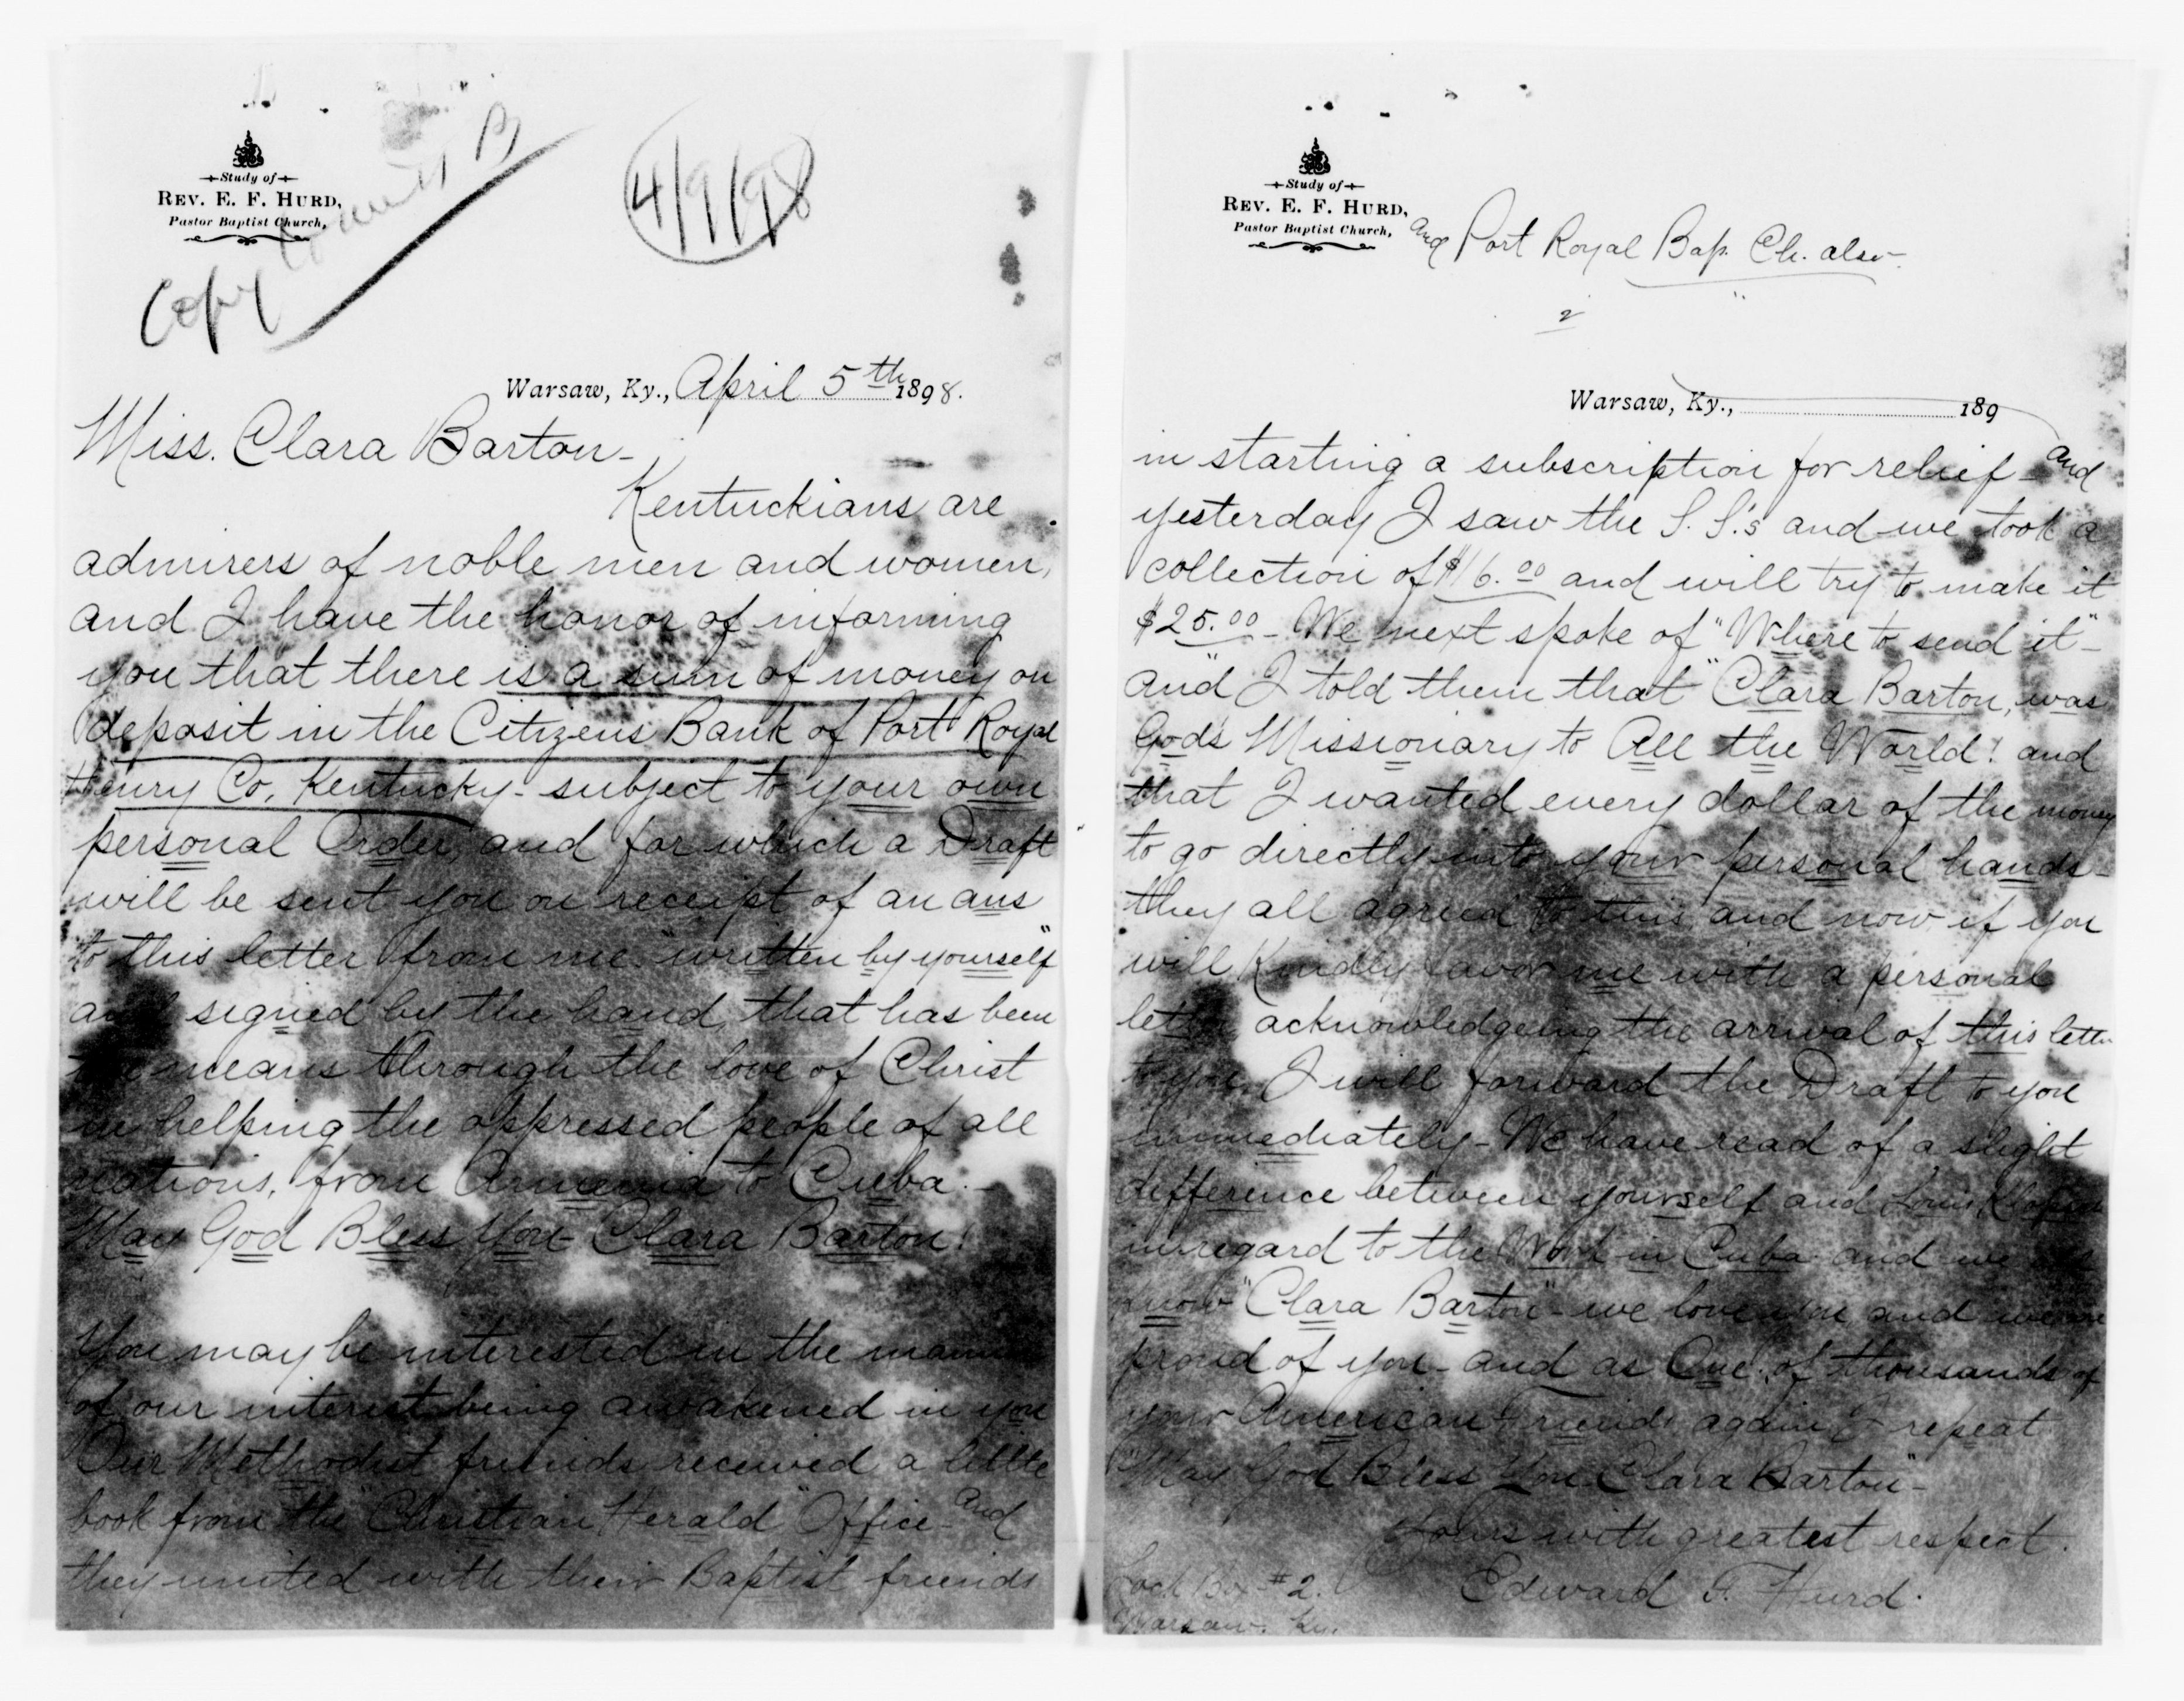 Study of
REV. E. F. HURD,
Pastor Baptist Church,
Copy
4/9/98
Warsaw, Ky., April 5th 1898.
Miss. Clara Barton-
Kentuckians are
admirers of noble men and women,
and I have the honor of informing
you that there is a sum of money on
deposit in the Citizens Bank of Port Royal
Henry Co, Kentucky- subject to your own
personal Order, and for which a Draft
will be sent you on receipt of an ans
to this letter from me "written by yourself"
and signed by the hand, that has been
the means through the love of Christ
in helping the oppressed people of all
nations, from Armenia to Cuba.-
May God Bless You Clara Barton!
You may be interested in the manner
of our interest being awakened in you
Our Methodist friends received a little
book from the "Christian Herald" Office- and
they united with their Baptist friends
Study of
REV. E. F. HURD,
Pastor Baptist Church,
and Port Royal Bap. Ch. also-
2
Warsaw, Ky., 189
in starting a subscription for relief- and
yesterday I saw the S. S.'s and we took a
collection of $16.00 and will try to make it
$25.00- We next spoke of "Where to send it"-
and I told them that "Clara Barton, was
God's Missionary to All the World! and
that I wanted every dollar of the money
to go directly into your personal hands-
they all agreed to this and now if you
will Kindly favor me with a personal
letter acknowledgeing the arrival of this letter
to you, I will forward the Draft to you
immediately- We have read of a slight
difference between yourself and Louis Klopsch
in regard to the Work in Cuba and we
know "Clara Barton"- we love you and we are
proud of you- and as One, of thousands of
your American Friends again I repeat
"May God Bless You Clara Barton"-
Yours with greatest respect.
Edward F. Hurd.
Lock Box #2.
Warsaw. Ky.